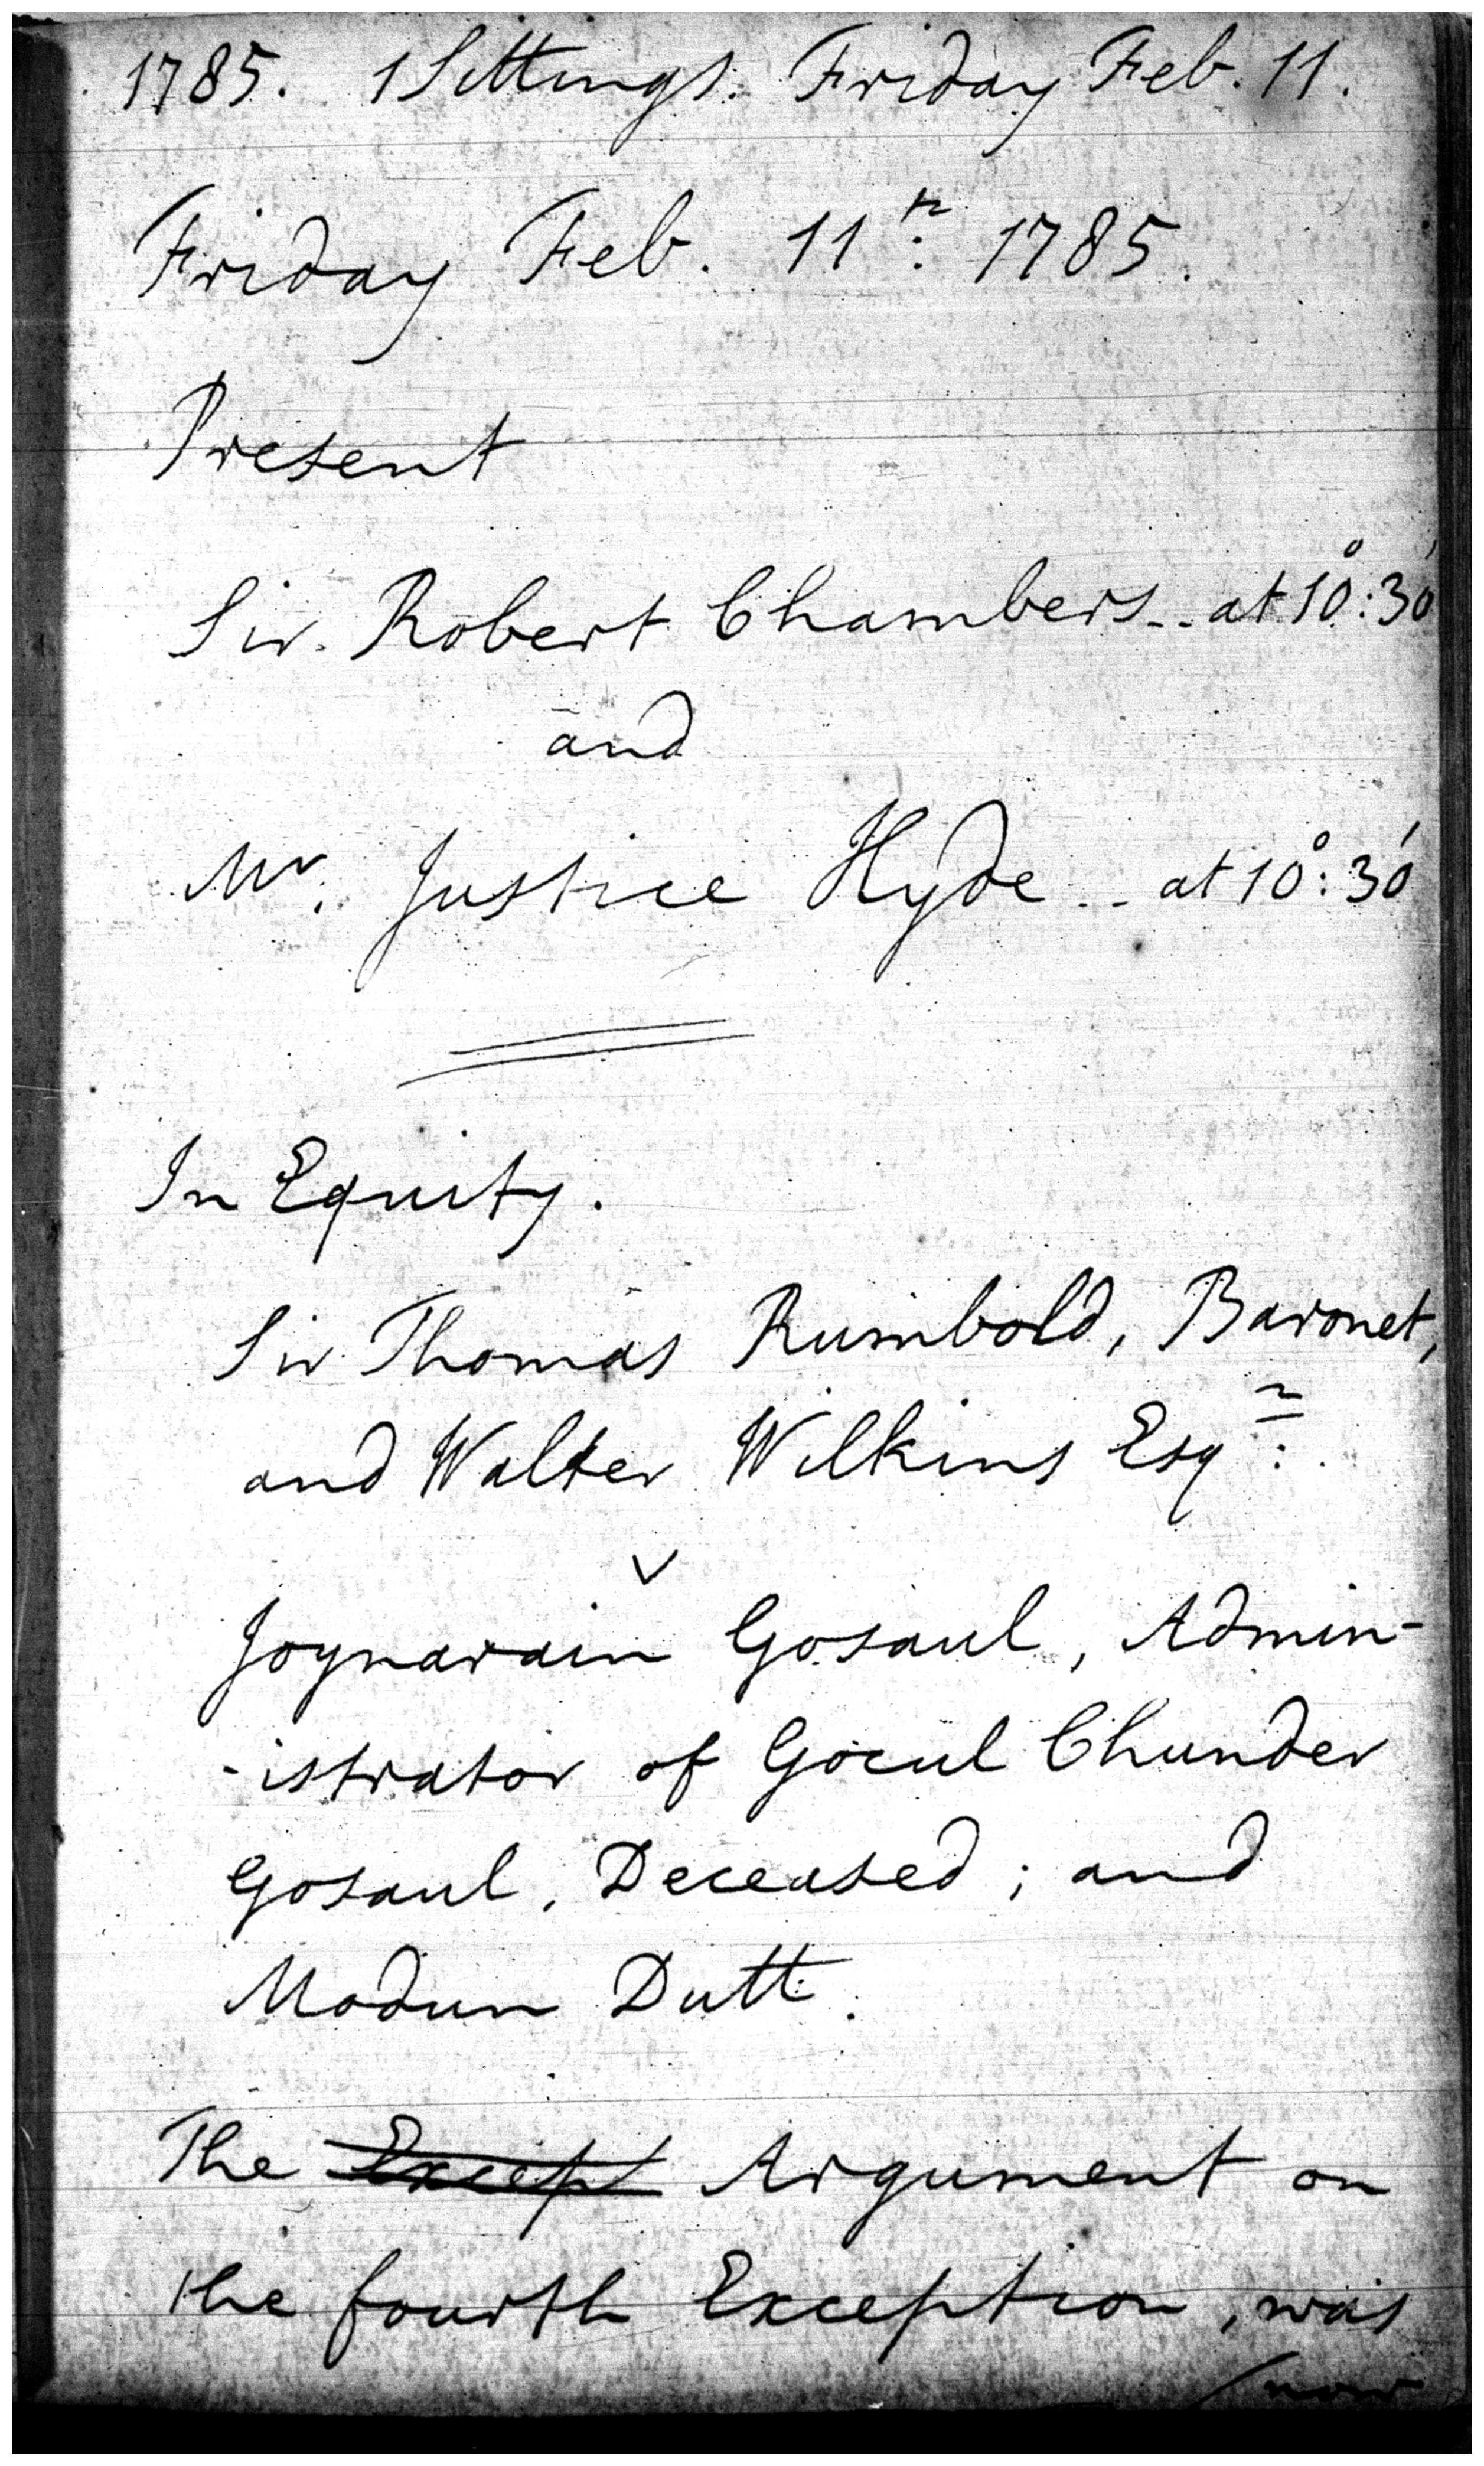 1785. 1 Sittings. Friday Feb. 11.
Friday Feb. 11th. 1785.
Present
Sir Robert Chambers -- at 10°:30'
and
Mr. Justice Hyde -- at 10°:30'
In Equity.
Sir Thomas Rumbold, Baronet,
and Walter Wilkins Esqr.
v
Joynarain Gosaul, Admin-
-istrator of Gocul Chunder
Gosaul, Deceased; and
Modun Dutt.
The Except Argument on
the fourth Exception, was
/now